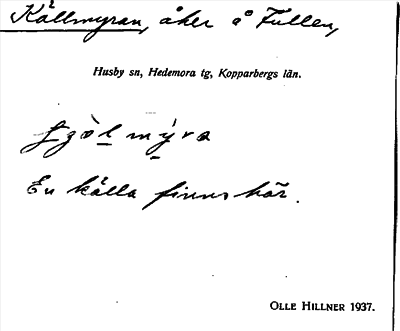 Källmyran, åker å Fullen,
Husby sn, Hedemora tg, Kopparbergs län.
En källa finns här.
OLLE HILLNER 1937.